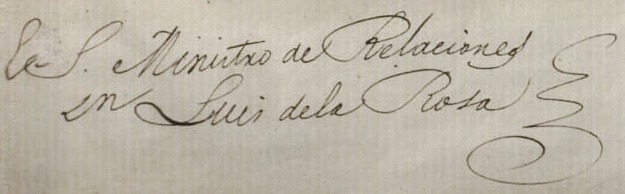 E. S. Ministro de Relaciones
Dn Luis de la Rosa